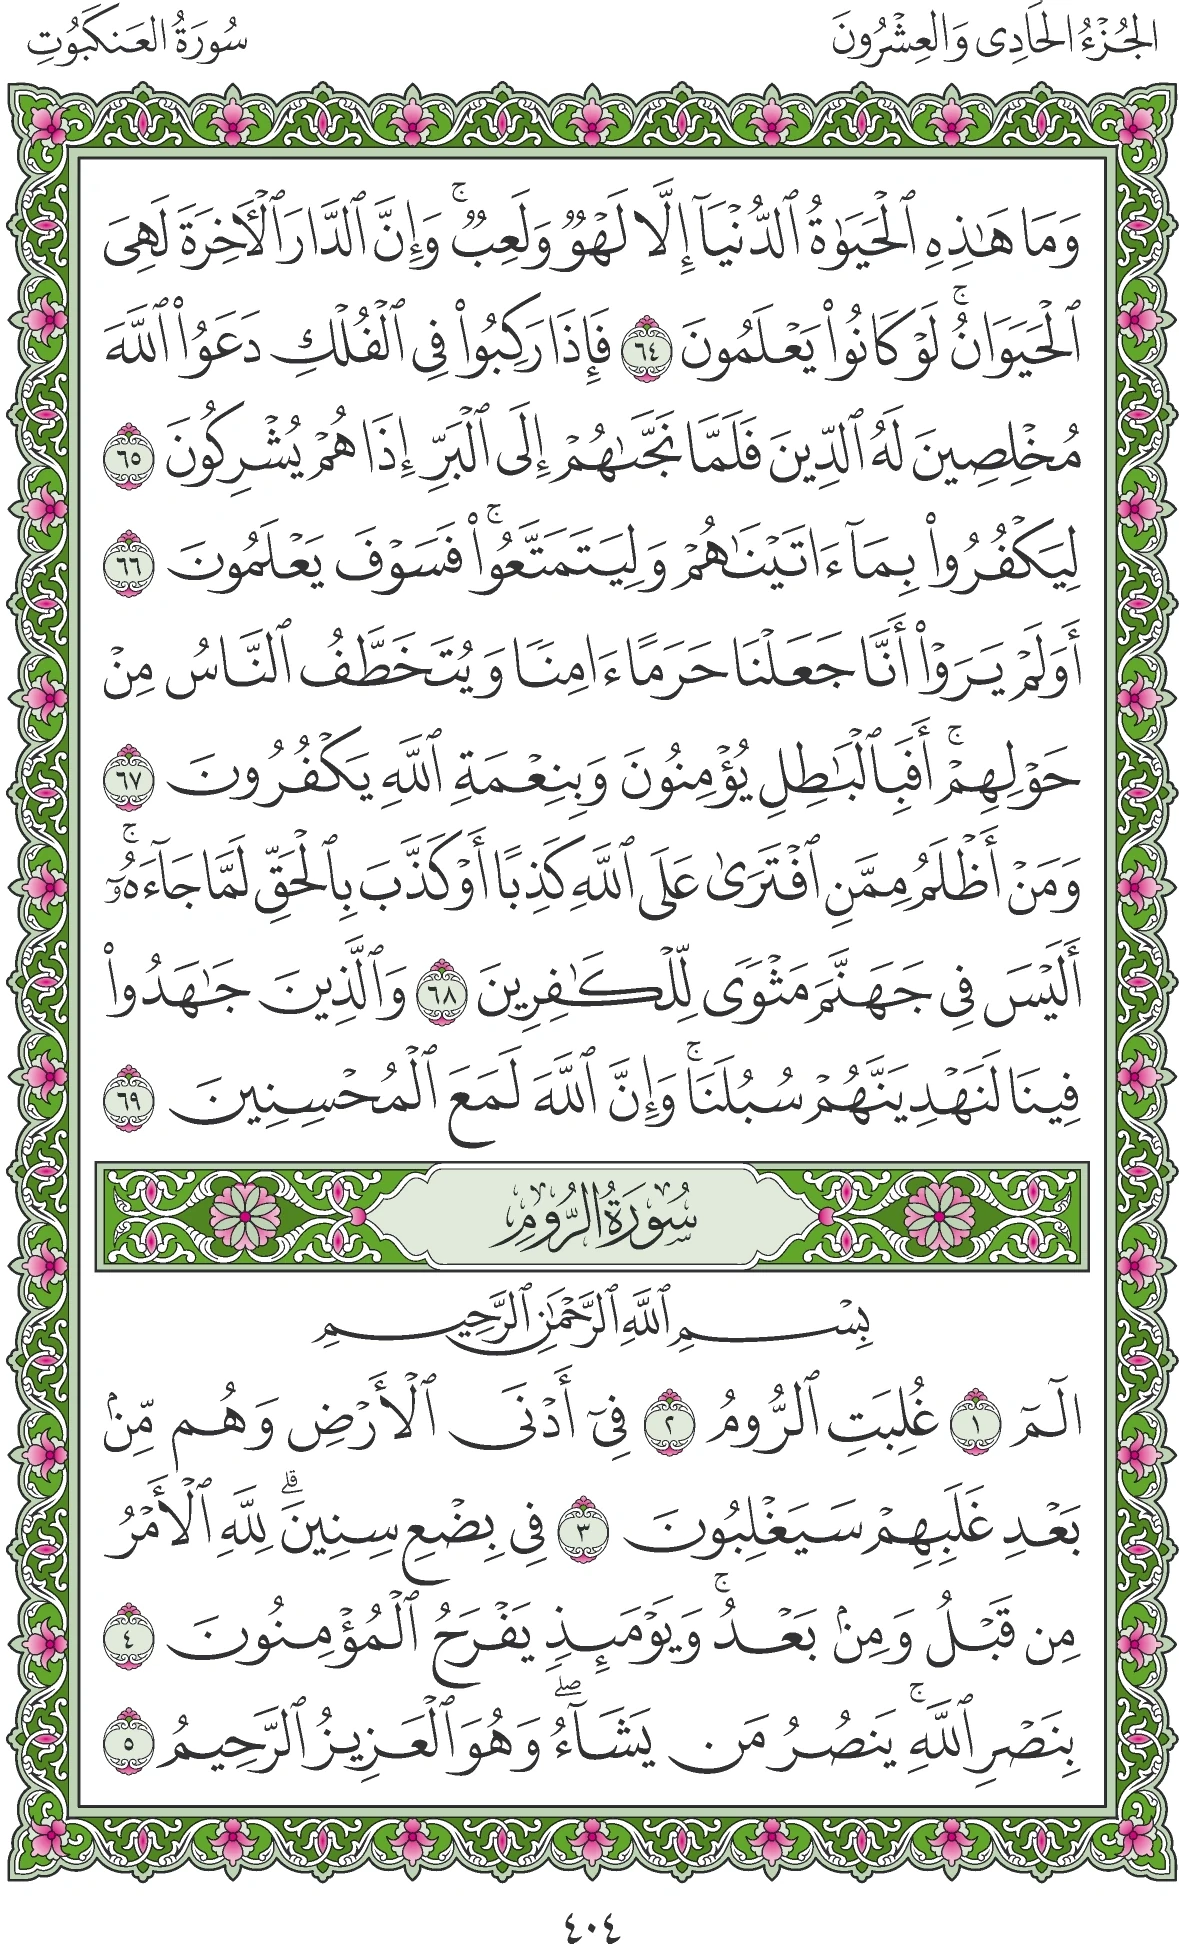 الجُزْءُ الحَادِى وَالعِشْرُونَ
سُورَةُ العَنكَبُوتِ
وَمَا هَٰذِهِ ٱلْحَيَوٰةُ ٱلدُّنْيَآ إِلَّا لَهْوٌ وَلَعِبٌ ۚ وَإِنَّ ٱلدَّارَ ٱلْأَخِرَةَ لَهِىَ
ٱلْحَيَوَانُ ۚ لَوْ كَانُوا۟ يَعْلَمُونَ ٦٤ فَإِذَا رَكِبُوا۟ فِى ٱلْفُلْكِ دَعَوُا۟ ٱللَّهَ
مُخْلِصِينَ لَهُ ٱلدِّينَ فَلَمَّا نَجَّىٰهُمْ إِلَى ٱلْبَرِّ إِذَا هُمْ يُشْرِكُونَ ٦٥
لِيَكْفُرُوا۟ بِمَآ ءَاتَيْنَٰهُمْ وَلِيَتَمَتَّعُوا۟ ۚ فَسَوْفَ يَعْلَمُونَ ٦٦
أَوَلَمْ يَرَوْا۟ أَنَّا جَعَلْنَا حَرَمًا ءَامِنًا وَيُتَخَطَّفُ ٱلنَّاسُ مِنْ
حَوْلِهِمْ ۚ أَفَبِٱلْبَٰطِلِ يُؤْمِنُونَ وَبِنِعْمَةِ ٱللَّهِ يَكْفُرُونَ ٦٧
وَمَنْ أَظْلَمُ مِمَّنِ ٱفْتَرَىٰ عَلَى ٱللَّهِ كَذِبًا أَوْ كَذَّبَ بِٱلْحَقِّ لَمَّا جَآءَهُۥٓ ۚ
أَلَيْسَ فِى جَهَنَّمَ مَثْوًى لِّلْكَٰفِرِينَ ٦٨ وَٱلَّذِينَ جَٰهَدُوا۟
فِينَا لَنَهْدِيَنَّهُمْ سُبُلَنَا ۚ وَإِنَّ ٱللَّهَ لَمَعَ ٱلْمُحْسِنِينَ ٦٩
سُورَةُ الرُّومِ
بِسْمِ ٱللَّهِ ٱلرَّحْمَٰنِ ٱلرَّحِيمِ
الٓمٓ ١ غُلِبَتِ ٱلرُّومُ ٢ فِىٓ أَدْنَى ٱلْأَرْضِ وَهُم مِّنۢ
بَعْدِ غَلَبِهِمْ سَيَغْلِبُونَ ٣ فِى بِضْعِ سِنِينَ ۗ لِلَّهِ ٱلْأَمْرُ
مِن قَبْلُ وَمِنۢ بَعْدُ ۚ وَيَوْمَئِذٍ يَفْرَحُ ٱلْمُؤْمِنُونَ ٤
بِنَصْرِ ٱللَّهِ ۚ يَنصُرُ مَن يَشَآءُ ۖ وَهُوَ ٱلْعَزِيزُ ٱلرَّحِيمُ ٥
٤٠٤